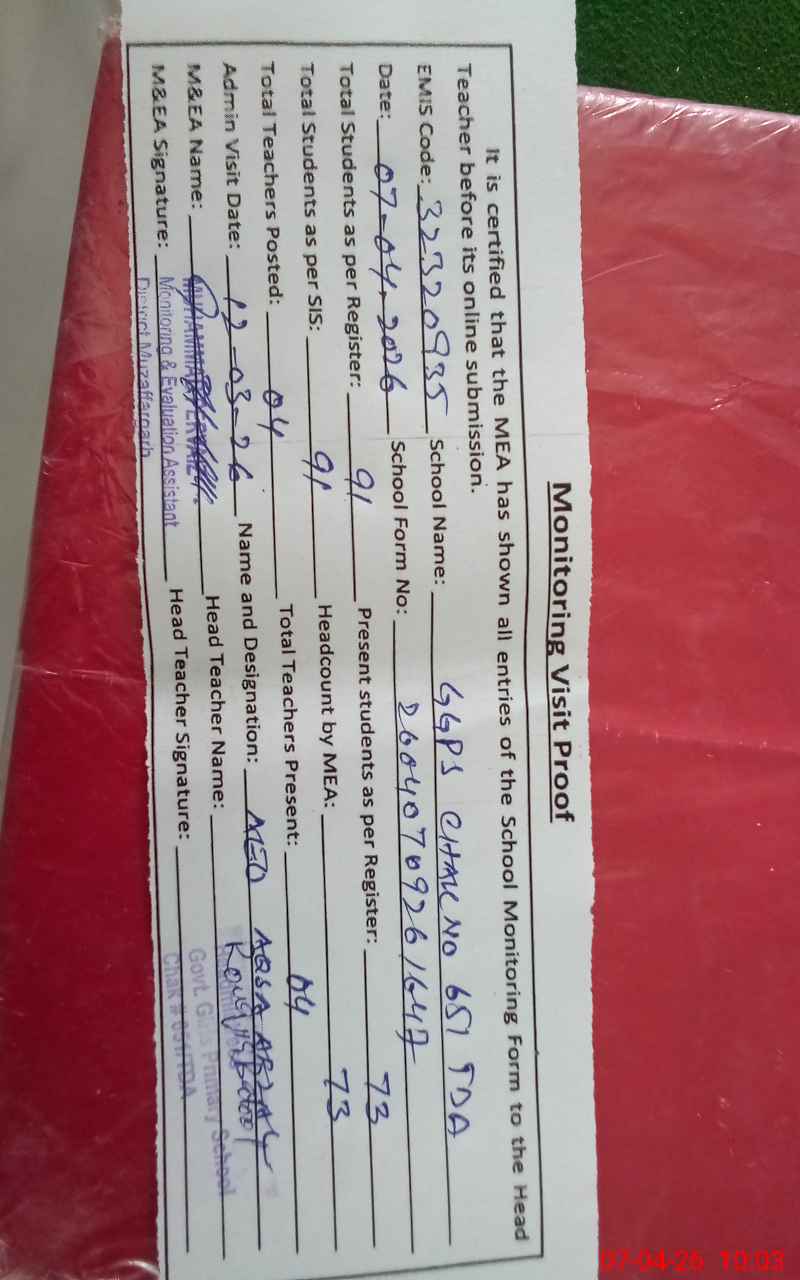 Monitoring Visit Proof
It is certified that the MEA has shown all entries of the School Monitoring Form to the Head
Teacher before its online submission.
EMIS Code: 32320935 School Name: GGPS CHAK NO 651 TDA
Date: 07-04-2026 School Form No: 26040709261647
Total Students as per Register: 91 Present students as per Register: 73
Total Students as per SIS: 91 Headcount by MEA: 73
Total Teachers Posted: 04 Total Teachers Present: 04
Admin Visit Date: 12-03-26 Name and Designation: AEO AQSA
M&EA Name: MUHAMMAD Head Teacher Name:
M&EA Signature: Head Teacher Signature:
Monitoring & Evaluation Assistant
District Muzaffargarh
Govt. Girls Primary School
Chak # 651/TDA
07-04-26 10:03